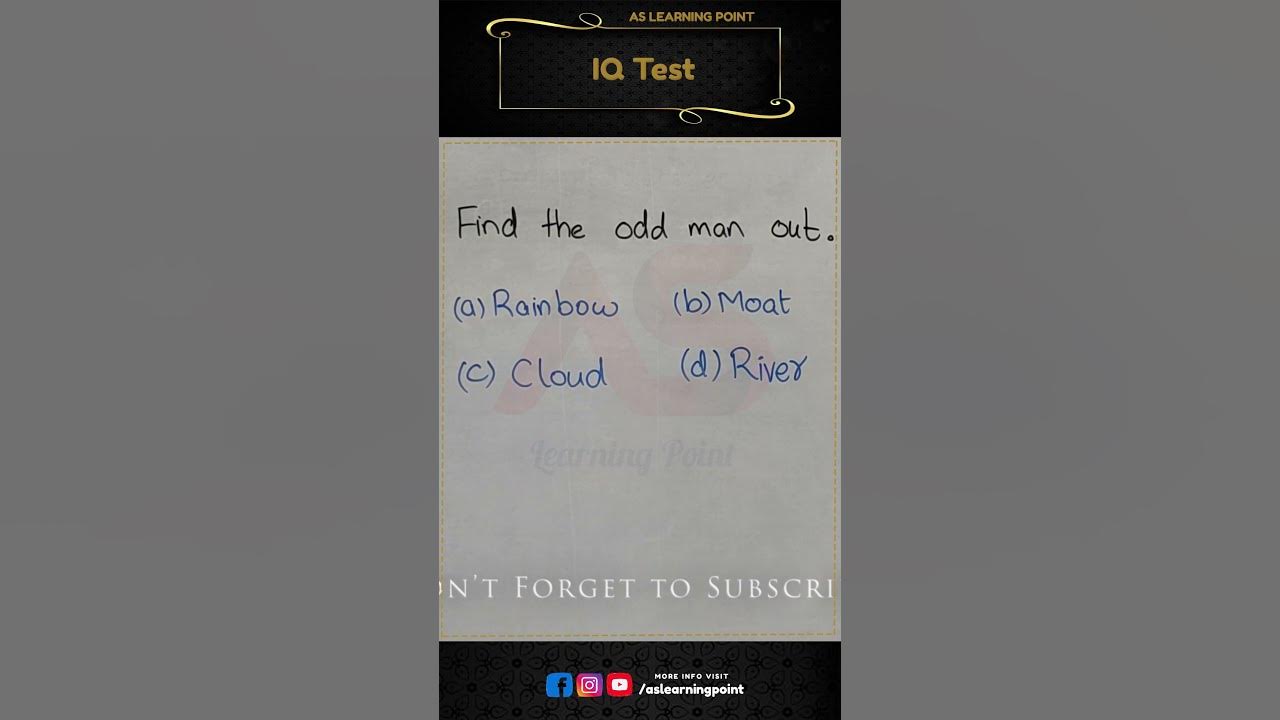 AS LEARNING POINT
IQ Test
Find the odd man out.
(a) Rainbow (b) Moat
(c) Cloud (d) River
AS
Learning Point
ON'T FORGET TO SUBSCRI
MORE INFO VISIT
/aslearningpoint